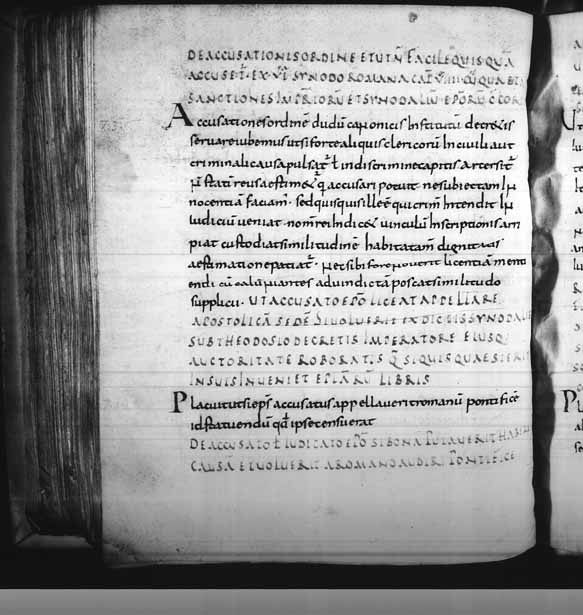 DE ACCUSATIONIS ORDINE ET UT NĒ FACILE QUISQUĀ
ACCUSET̄ · EX · VI · SYNODO ROMANA CAP̄ VIII
SANCTIONES
Accusationes ordinē dudū canonicis Institutū decretis
seruare iubemus ut si forte aliquis clericorū In ciuili aut
criminali causa pulsat̄ ł in discrimine capitis arcersit̄
n̄ statī reus aestimet q̄ accusari potuit ne subiectam In
nocentiā faciam̄ · sed quisquis ille ē qui crim̄ Intendit In
iudiciū ueniat · nom̄ rei Indicet uinculū Inscriptionis arri
piat custodiat similitudinē habita tam̄ dignitatis
aestimatione patiat̄ · nec sibi fore nouerit licentiā menti
endi cū calūniantes ad uindictā poscat similitudo
supplicii · UT ACCUSATO EP̄O LICEAT APPELLARE
APOSTOLICĀ SEDĒ SI UOLUERIT EX DICTIS SYNODALI
SUB THEODOSIO DECRETIS IMPERATORE EIUSQ·
AUCTORITATE ROBORATIS Q̄ SI QUIS QUAESIERIT
IN SUIS INUENIET EP̄LARŪ LIBRIS
Placuit ut si ep̄s accusatus appellauerit romanū pontificē
id statuendū qđ ipse censuerit
DE ACCUSATO ł IUDICATO EP̄O SI BONĀ PUTAUERIT
CAUSĀ ET UOLUERIT A ROMANO AUDIRI PONTIFICE